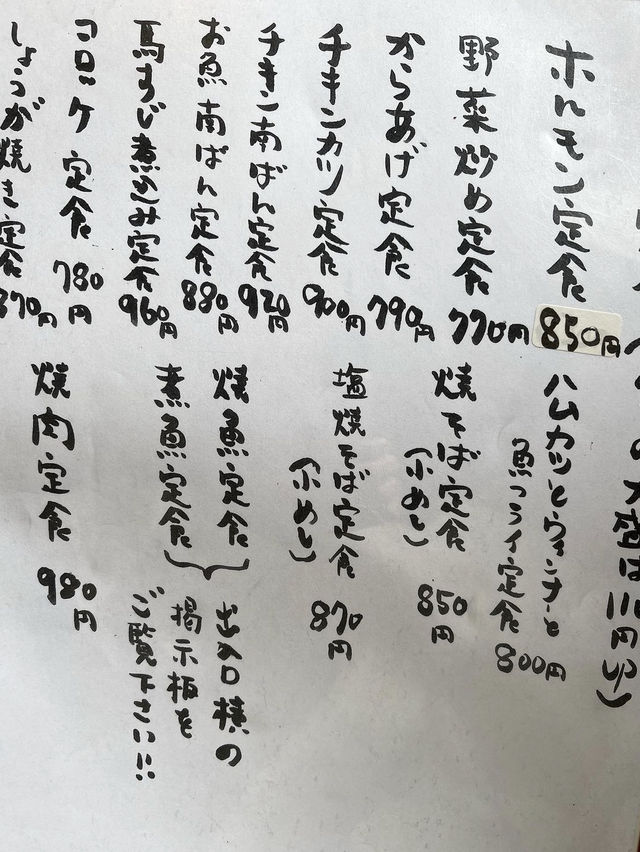 の大盛は110円up)
ホルモン定食 850円
野菜炒め定食 770円
からあげ定食 790円
チキンカツ定食 900円
チキン南ばん定食 920円
お魚南ばん定食 880円
馬すじ煮込み定食 960円
コロッケ定食 780円
しょうが焼き定食 870円
ハムカツとウィンナーと
魚フライ定食 800円
焼そば定食 850円
(小めし)
塩焼そば定食 870円
(小めし)
焼魚定食
煮魚定食
出入口横の
掲示板を
ご覧下さい!!
焼肉定食 980円